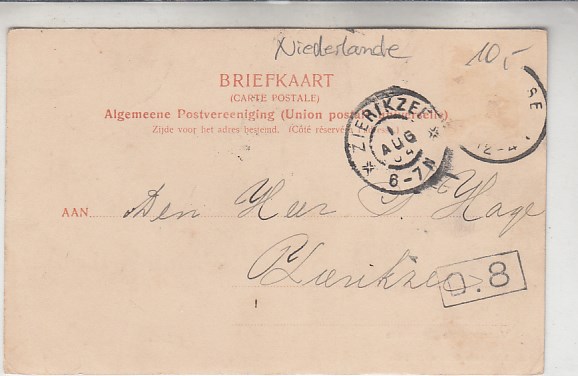 Niederlande
10,-
BRIEFKAART
(CARTE POSTALE)
Algemeene Postvereeniging (Union postale universelle).
Zijde voor het adres bestemd. (Côté réservé
ZIERIKZEE
1
AUG
04
6-7N
12-4
AAN Den Heer Hage
Zierikzee
0.8